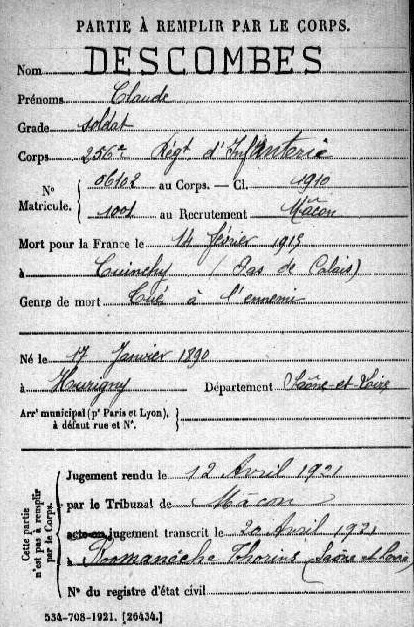 PARTIE À REMPLIR PAR LE CORPS.
Nom DESCOMBES
Prénoms Claude
Grade soldat
Corps 256e Régt d'Infanterie
N° Matricule. 06108 au Corps. — Cl. 1910
1001 au Recrutement Mâcon
Mort pour la France le 14 février 1915
à Cuinchy (Pas de Calais)
Genre de mort Tué à l'ennemi
Né le 17 Janvier 1890
à Hurigny Département Saône-et-Loire
Arr' municipal (p' Paris et Lyon),
à défaut rue et N°.
Cette partie n'est pas à remplir par le Corps.
Jugement rendu le 12 Avril 1921
par le Tribunal de Mâcon
acte ou jugement transcrit le 20 Avril 1921
à Romanèche Thorins (Saône et Loire)
N° du registre d'état civil
534-708-1921. [26434.]